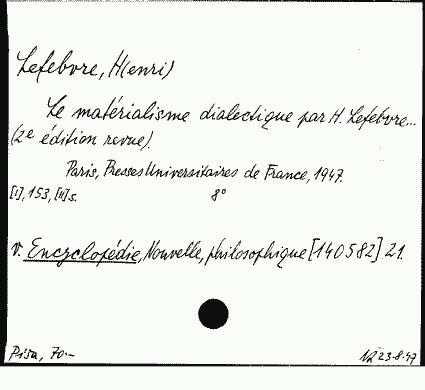 Lefebvre, H(enri)
Le matérialisme dialectique par H. Lefebvre...
(2e édition revue).
Paris, Presses Universitaires de France, 1947.
[I], 153, [II] s. 8°
v. Encyclopédie, Nouvelle, philosophique [140582] 21.
Pisa, 70.-
NR 23-8-47